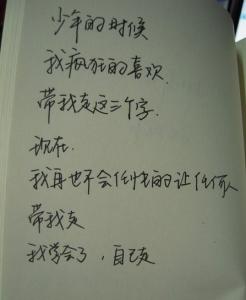 少年的时候
我疯狂的喜欢
带我走这三个字.
现在.
我再也不会任性的让任何人
带我走
我学会了，自己走